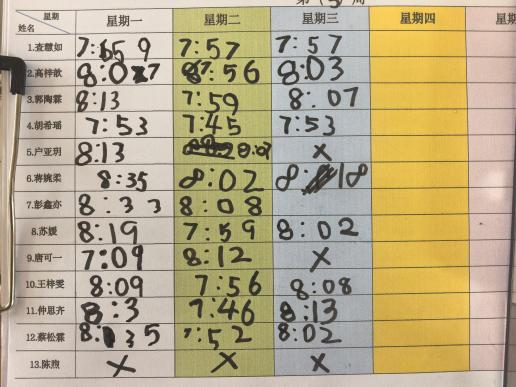 第(3)周
星期 星期一 星期二 星期三 星期四
姓名
1.查慧如 7:59 7:57 7:57
2.高梓歆 8:07 7:56 8:03
3.郭陶霖 8:13 7:59 8:07
4.胡希瑶 7:53 7:45 7:53
5.卢亚玥 8:13 8:07 ×
6.蒋婉柔 8:35 8:02 8:18
7.彭鑫亦 8:33 8:08
8.苏媛 8:19 7:59 8:02
9.唐可一 7:09 8:12 ×
10.王梓雯 8:09 7:56 8:08
11.仲思齐 8:3 7:46 8:13
12.蔡松霖 8:35 7:52 8:02
13.陈煦 × × ×